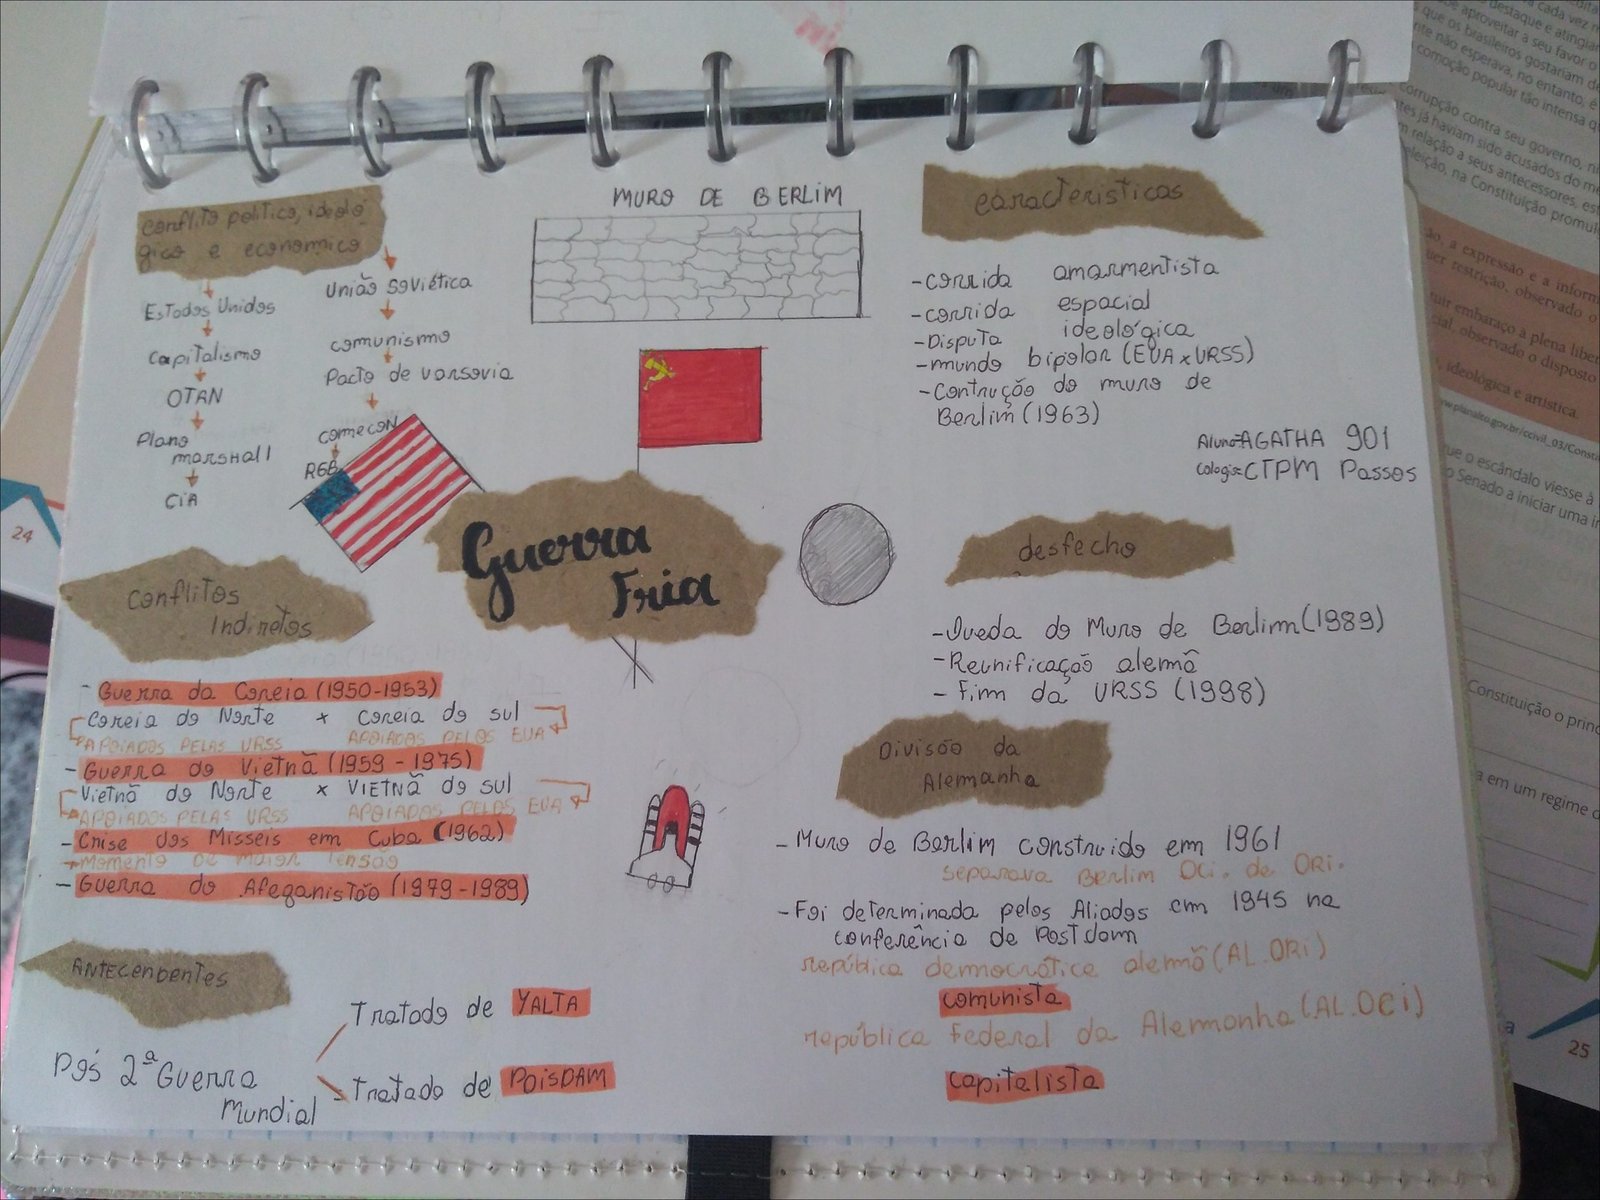 conflito político, ideoló
gico e economico
Estados Unidos
capitalismo
OTAN
Plano
marshall
CIA
União Soviética
comunismo
Pacto de varsovia
comecon
RGB
MURO DE BERLIM
caracteristicas
-corrida amarmentista
-corrida espacial
-Disputa ideológica
-mundo bipolar (EUA x URSS)
-Contrução do muro de
Berlim (1963)
Aluno=AGATHA 901
Cologio=CTPM Passos
Guerra
Fria
Conflitos
Indiretos
- Guerra da Coreia (1950-1953)
Coreia do Norte x Coreia do sul
APOIADOS PELAS URSS APOIADOS PELOS EUA
- Guerra do Vietnã (1959 - 1975)
Vietnã do Norte x VIETNÃ do sul
APOIADOS PELAS URSS APOIADOS PELOS EUA
- Crise dos Misseis em Cuba (1962)
Momento de maior tensão
- Guerra do Afeganistão (1979-1989)
ANTECENDENTES
Pós 2ª Guerra
Mundial
Tratado de YALTA
Tratado de POISDAM
desfecho
-Queda do Muro de Berlim (1989)
-Reunificação alemã
- Fim da URSS (1998)
Divisão da
Alemanha
- Muro de Berlim construido em 1961
separava Berlim Oci. de ORi.
- Foi determinada pelos Aliados em 1945 na
conferência de Postdam
república democrática alemã (AL.ORi)
comunista
república Federal da Alemanha (AL.OCi)
capitalista
24
25